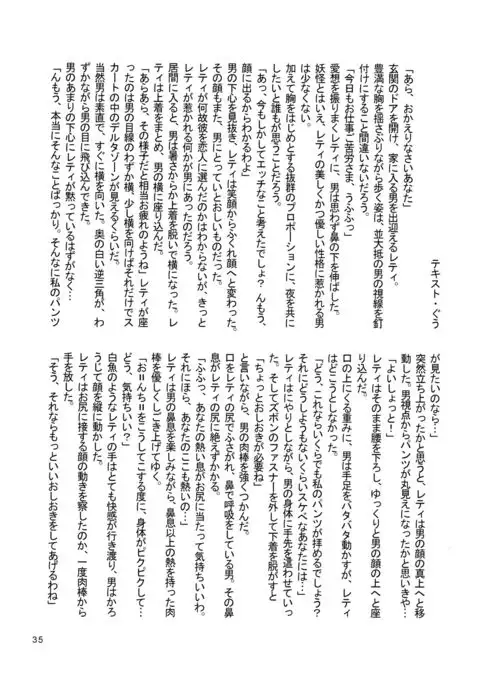 テキスト・ぐう
「あら、おかえりなさいあなた」
玄関のドアを開け、家に入る男を出迎えるレティ。
豊満な胸を揺さぶりながら歩く姿は、並大抵の男の視線を釘
付けにすること間違いないだろう。
「今日もお仕事ご苦労さま、うふふっ」
愛想を振りまくレティに、男は思わず鼻の下を伸ばした。
妖怪とはいえ、レティの美しくかつ優しい性格に惹かれる男
は少なくない。
加えて胸をはじめとする抜群のプロポーションに、夜を共に
したいと誰もが思うことだろう。
「あっ、今もしかしてエッチなこと考えてたでしょ?んもう、
顔に出るからわかるわよ」
男の下心を見抜き、レティは笑顔からふくれ顔へと変わった。
その顔もまた、男にとっていとおしいものだった。
レティが何故彼を恋人に選んだのかはわからないが、きっと
レティが惹かれる何かが男にあったのだろう。
居間に入ると、男は暑さからか上着を脱いで横になった。レ
ティは上着をまとめ、男の横に座り込んだ。
「あらあら、その様子だと相当お疲れのようね」レティが座
ったのは男の目線のわずか横、少し横を向けばそれだけでス
カートの中のデルタゾーンが見えるくらいだ。
当然男は素直で、すぐに横を向いた。奥の白い逆三角が、わ
ずかながら男の目に飛び込んできた。
男のあまりの下心にレティが黙っているはずがなく…
「んもう、本当にそんなことばっかり。そんなに私のパンツ
が見たいのなら…!」
突然立ち上がったかと思うと、レティは男の顔の真上へと移
動した。男視点からパンツが丸見えになったかと思いきや…
「よいしょっと!」
レティはそのまま腰を下ろし、ゆっくりと男の顔の上へと座
り込んだ。
口の上にくる重みに、男は手足をバタバタ動かすが、レティ
はどこうとしなかった。
「どう、これならいくらでも私のパンツが拝めるでしょう?
それにどうしようもないくらいスケベなあなたには…」
レティはにやりとしながら、男の身体に手先を這わせていっ
た。そしてズボンのファスナーを外して下着を脱がすと
「ちょっとおしおきが必要ね」
と言いながら、男の肉棒を強くつかんだ。
口をレティの尻でふさがれ、鼻で呼吸をしている男。その鼻
息がレティの尻に絶えずかかる。
「ふふっ、あなたの熱い息がお尻に当たって気持ちいいわ。
それにほら、あなたのここも熱いの…」
レティは男の鼻息を楽しみながら、鼻息以上の熱を持った肉
棒を優しくしごき上げてゆく。
「お=ん=ち=をこうしてこする度に、身体がピクピクして…
どう、気持ちいい?」
白魚のようなレティの手はとても快感が行き渡り、男はかろ
うじて顔を縦に動かした。
レティはお尻に接する顔の動きを察したのか、一度肉棒から
手を放した。
「そう、それならもっといいおしおきをしてあげるわね」
35